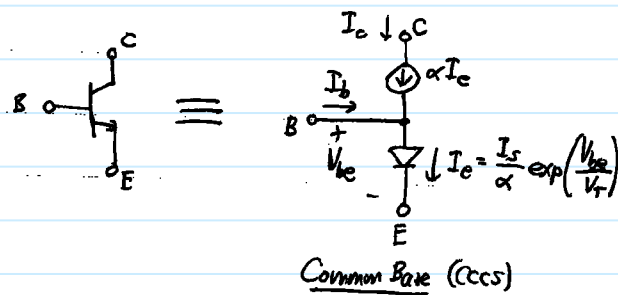 C
B
E
≡
I_c ↓ C
↓ αI_e
I_b →
B
+
V_be
-
↓ I_e = I_s/α exp(V_be/V_T)
E
Common Base (CCCS)